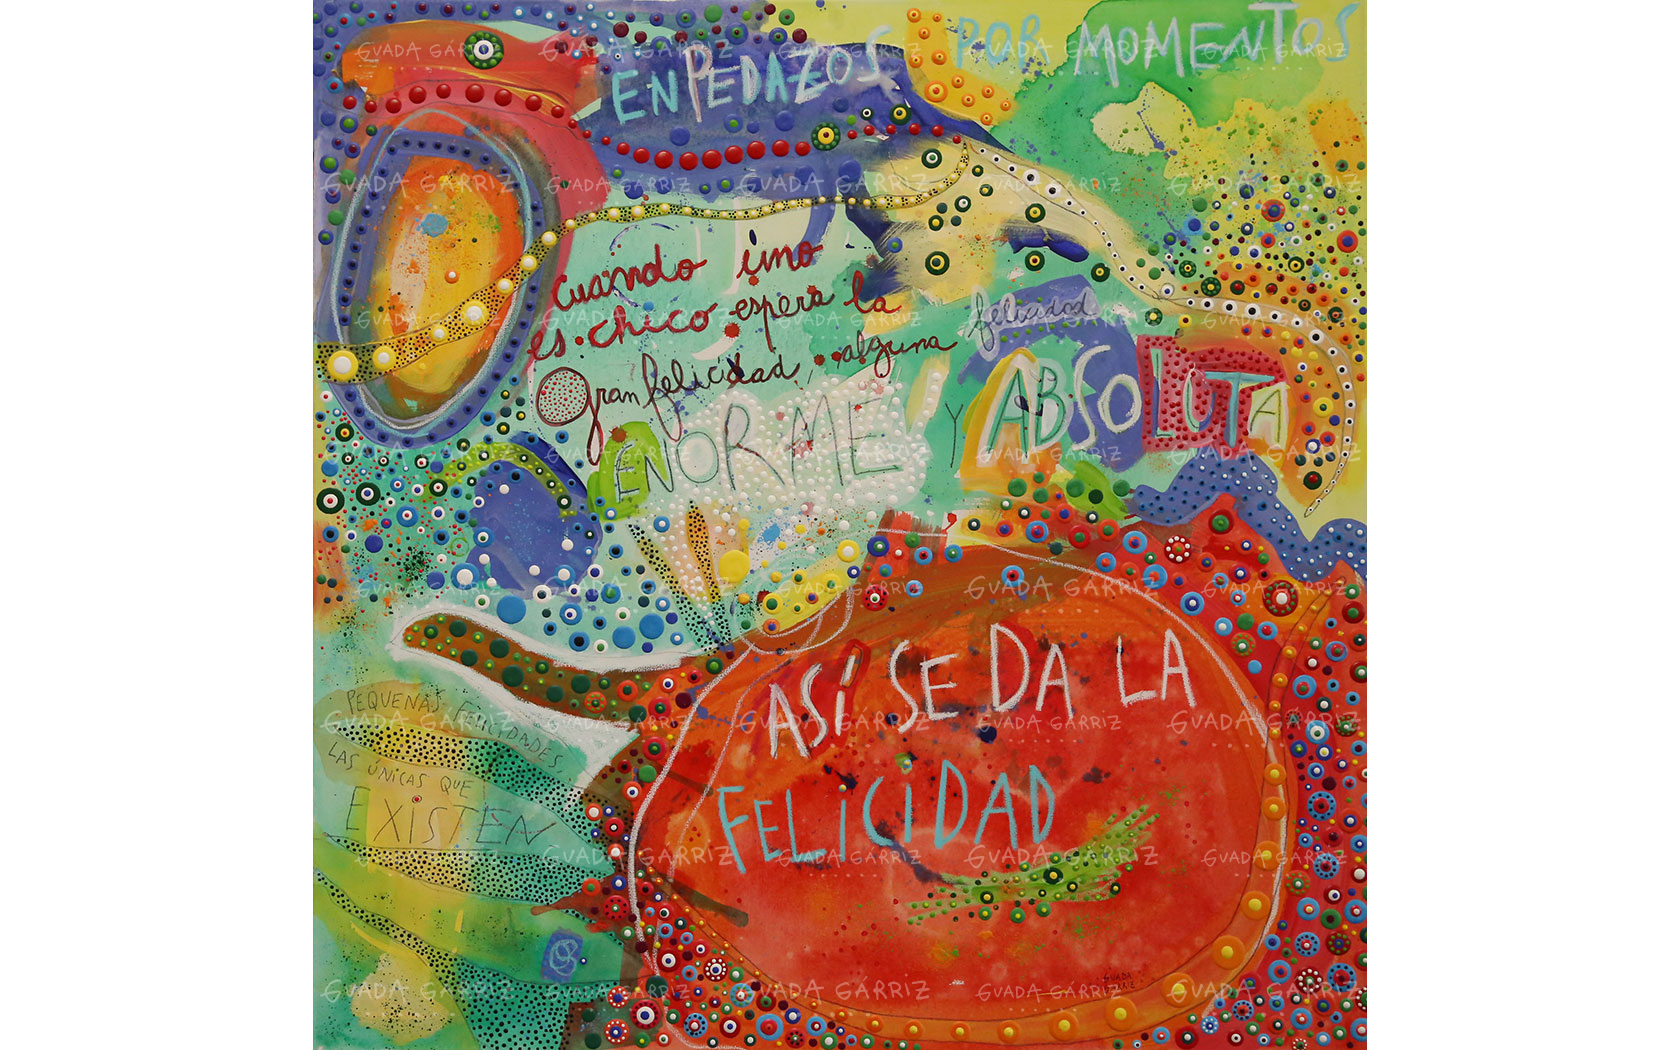 EN PEDAZOS POR MOMENTOS
cuando uno
es chico espera la
gran felicidad, alguna felicidad
ENORME Y ABSOLUTA
ASÍ SE DA LA
FELICIDAD
PEQUEÑAS FELICIDADES,
LAS ÚNICAS QUE
EXISTEN
GUADA
GÁRRIZ
GUADA GÁRRIZ